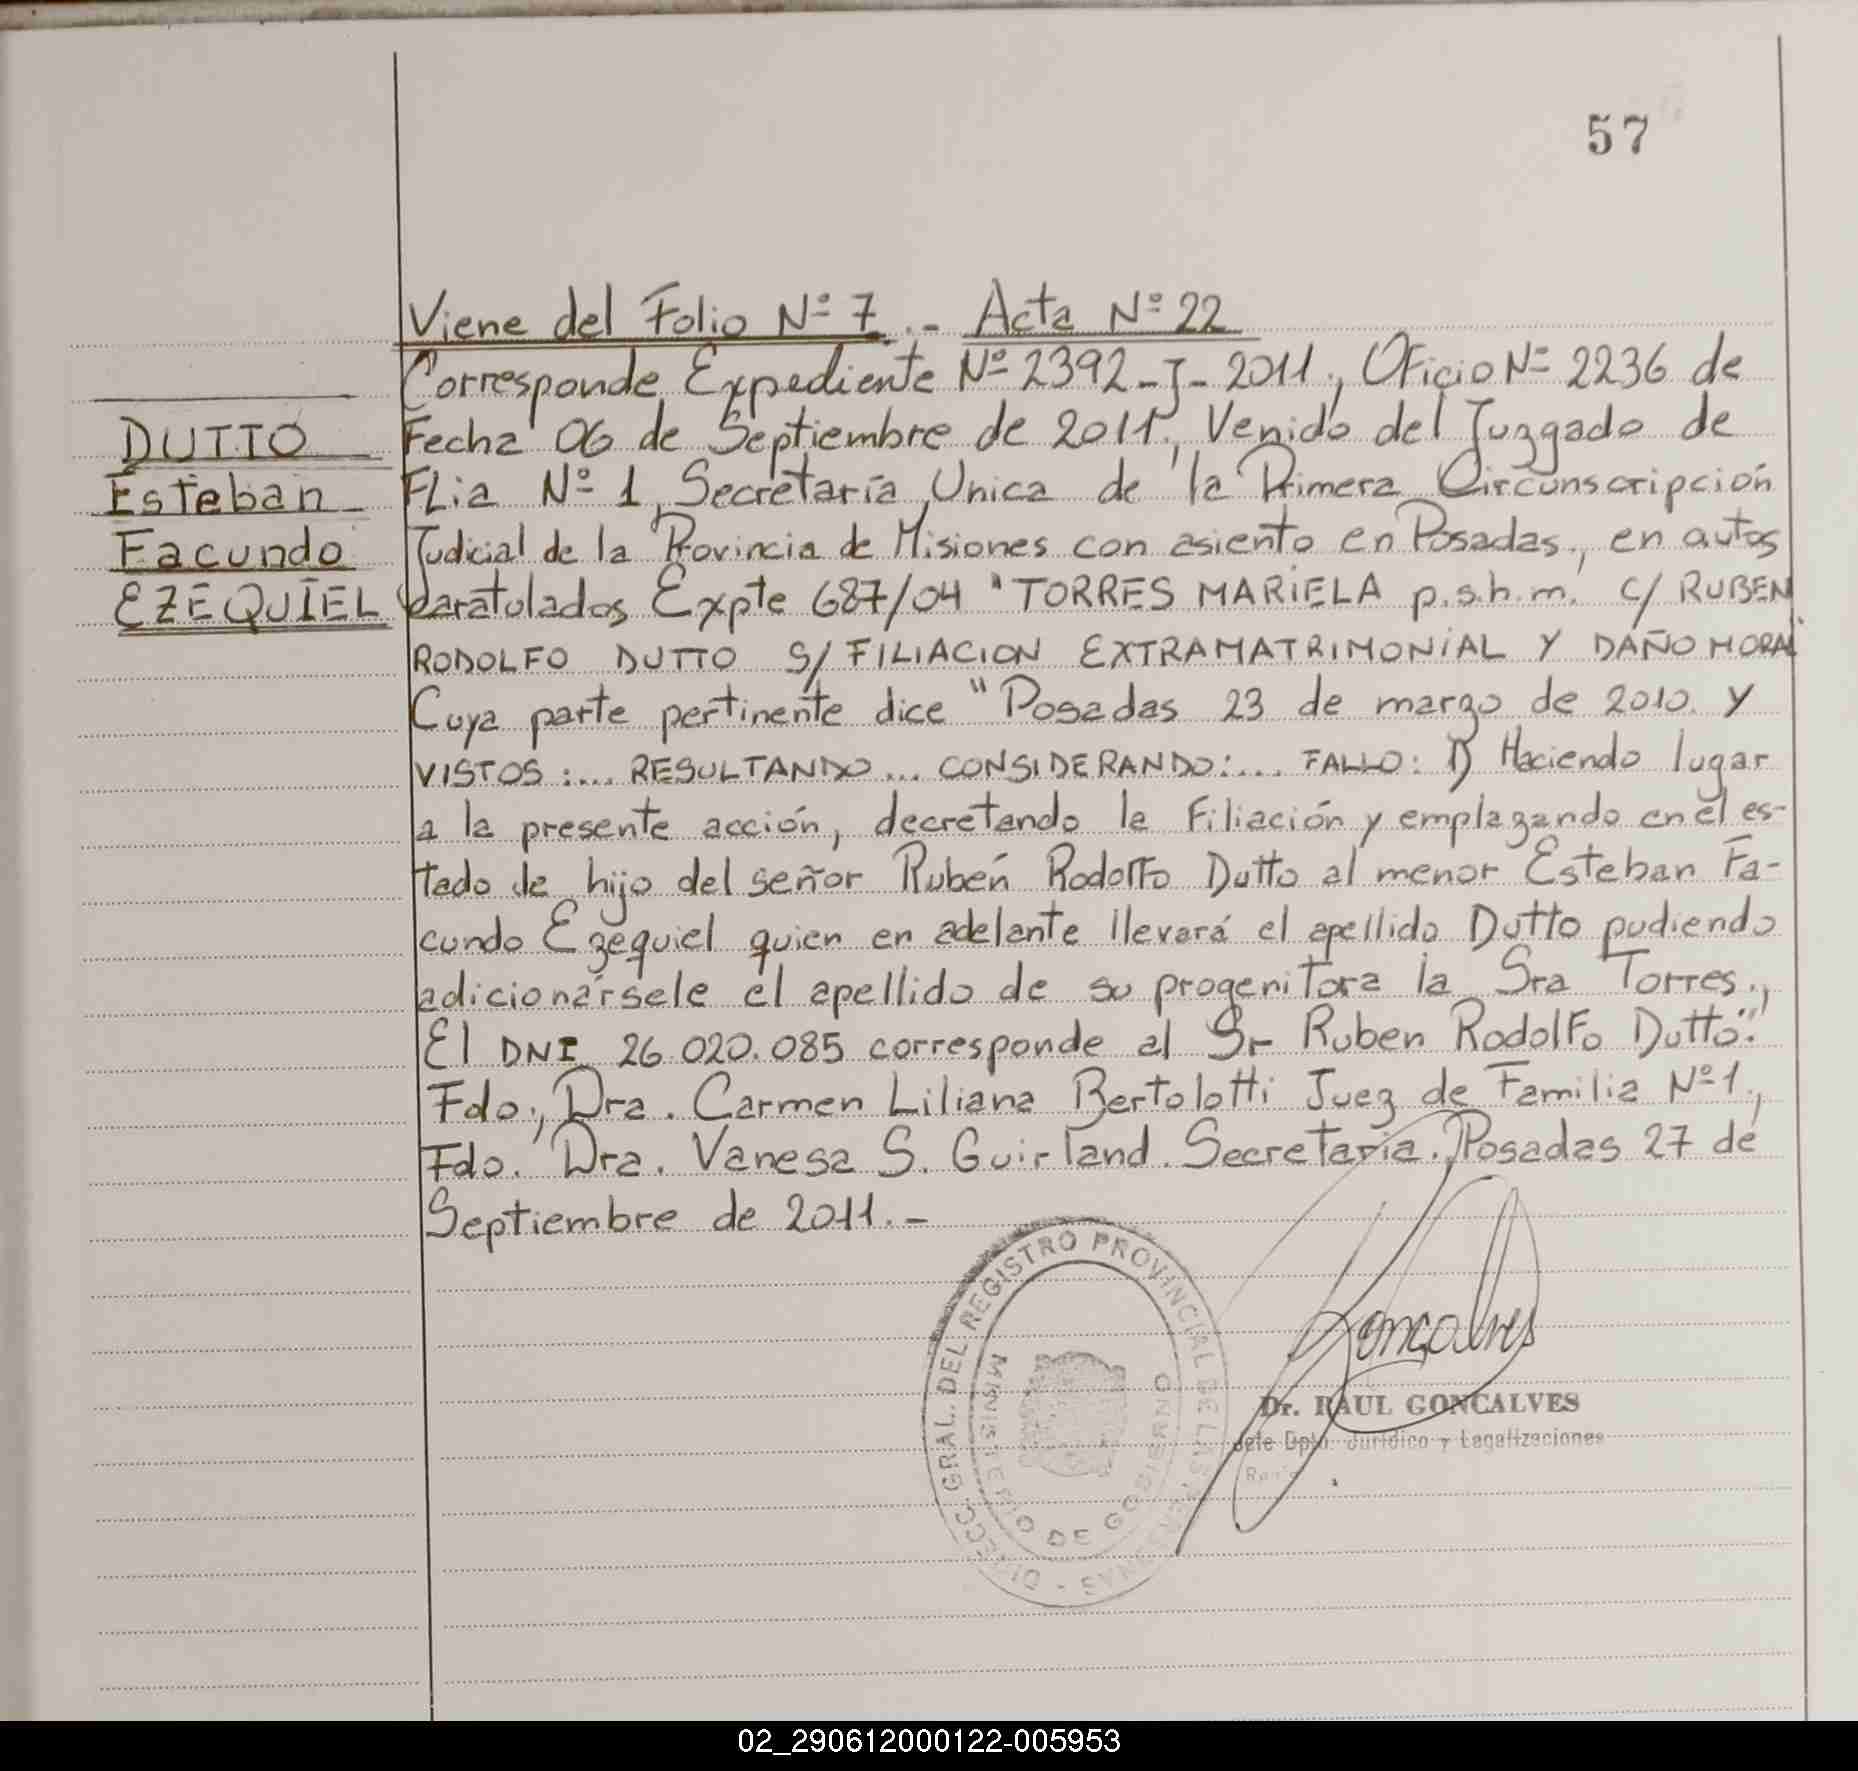 57
Viene del Folio Nº 7.- Acta Nº 22
Corresponde Expediente Nº 2392-J-2011., Oficio Nº 2236 de
DUTTO
Fecha 06 de Septiembre de 2011., Venido del Juzgado de
Esteban
FLia Nº 1, Secretaría Unica de la Primera Circunscripción
Facundo
Judicial de la Provincia de Misiones con asiento en Posadas., en autos
EZEQUIEL
caratulados Expte 687/04 "TORRES MARIELA p.s.h.m. C/ RUBEN
RODOLFO DUTTO S/ FILIACION EXTRAMATRIMONIAL Y DAÑO MORAL"
Cuya parte pertinente dice "Posadas 23 de marzo de 2010. Y
VISTOS:... RESULTANDO... CONSIDERANDO:... FALLO: 1) Haciendo lugar
a la presente acción, decretando la Filiación y emplazando en el es-
tado de hijo del señor Rubén Rodolfo Dutto al menor Esteban Fa-
cundo Ezequiel quien en adelante llevará el apellido Dutto pudiendo
adicionársele el apellido de su progenitora la Sra Torres.,
El DNI 26.020.085 corresponde al Sr Ruben Rodolfo Dutto."
Fdo., Dra. Carmen Liliana Bertolotti Juez de Familia Nº 1.,
Fdo. Dra. Vanesa S. Guirland. Secretaria. Posadas 27 de
Septiembre de 2011.-
DIRECC. GRAL. DEL REGISTRO PROVINCIAL DE LAS PERSONAS -
MINISTERIO DE GOBIERNO
Goncalves
Dr. RAUL GONCALVES
Jefe Dpto. Jurídico y Legalizaciones
02_290612000122-005953